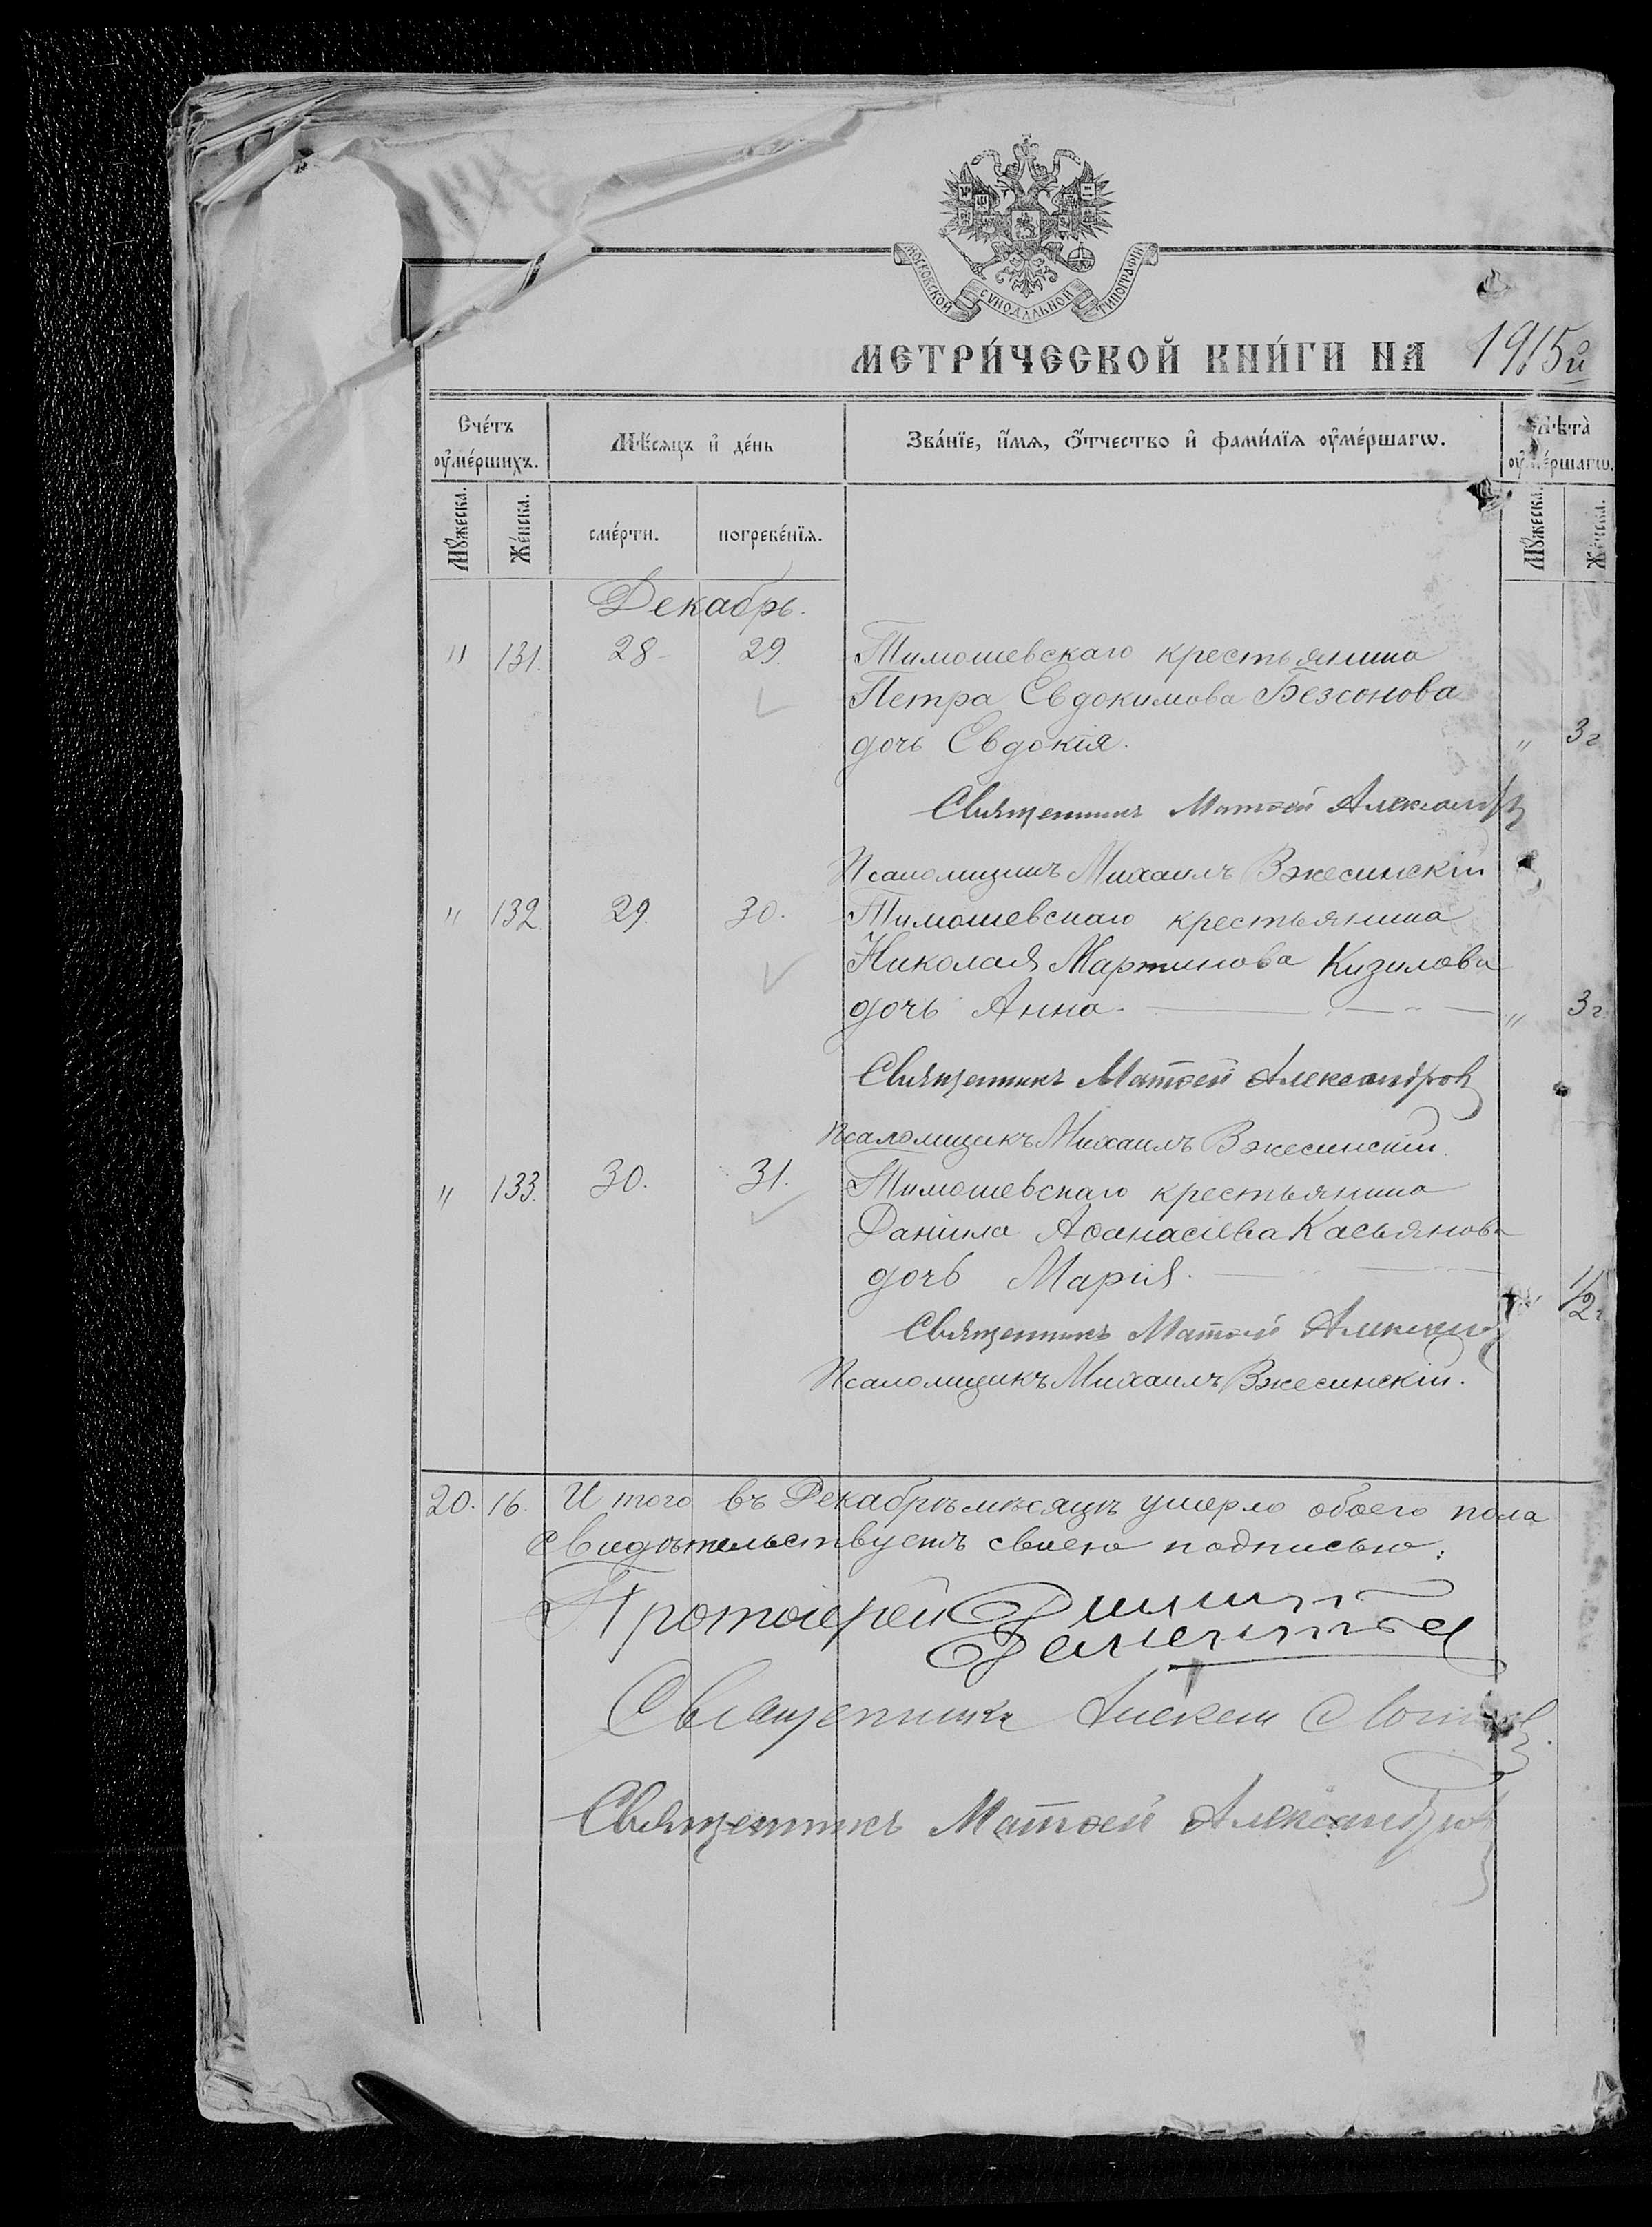 МОСКОВСКОЙ СѴНОДАЛЬНОЙ ТИПОГРАФІИ
МЕТРИ́ЧЕСКОЙ КНИ́ГИ НА 1915й
Сче́тъ ᲂу҆ме́ршихъ.
Мѣ́сяцъ и҆ де́нь
Зва́нїе, и҆́мѧ, ѻ҆́тчество и҆ фами́лїѧ ᲂу҆ме́ршагѡ.
Лѣ́та ᲂу҆ме́ршагѡ.
Мꙋ́жеска.
Же́нска.
сме́рти.
погребе́нїѧ.
Мꙋ́жеска.
Же́нска.
Декабрь.
" 131. 28 29. Тимошевскаго крестьянина
Петра Евдокимова Безсонова
дочь Евдокія. " 3 г
Священникъ Матѳей Александровъ
Псаломщикъ Михаилъ Вжесинскій
" 132. 29. 30. Тимошевскаго крестьянина
Николая Мартинова Кизилова
дочь Анна. " 3 г.
Священникъ Матѳей Александровъ
Псаломщикъ Михаилъ Вжесинскій.
" 133. 30. 31. Тимошевскаго крестьянина
Даніила Аѳанасіева Касьянова
дочь Марія. 1/2 г
Священникъ Матѳей
Псаломщикъ Михаилъ Вжесинскій.
20. 16. И того въ Декабрѣ мѣсяцѣ умерло обоего пола
свидѣтельствуемъ своею подписью:
Протоіерей
Священникъ Алексій
Священникъ Матѳей Александровъ